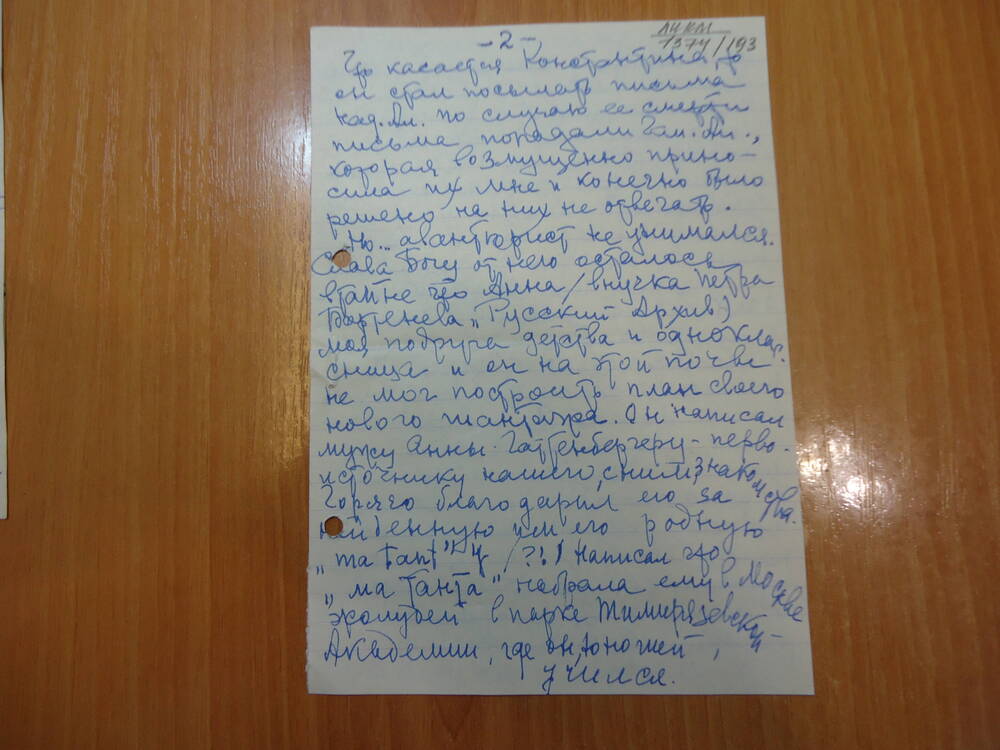 ЛЧКМ
1374/193
- 2 -
Что касается Константина то
он стал посылать письма
Над. Ал. по случаю ее смерти
письма попадали Гал. Ал.,
которая возмущенно прино-
сила их мне и конечно было
решено на них не отвечать.
Но... авантюрист не унимался.
Слава Богу от него осталось
втайне что Анна /внучка Петра
Бартенева „Русский Архив)
моя подруга детства и однокла-
сница и он на этой почве
не мог построить план своего
нового шантажа. Он написал
мужу Анны - Гаттенбергеру - перво-
источнику нашего, с ним, знакомства.
Горячо благодарил его за
найденную им его родную
„ma tant" /?!/ Написал что
„ма танта" набрала ему в Москве
желудей в парке Тимирязевской
Академии, где он, юношей,
учился.